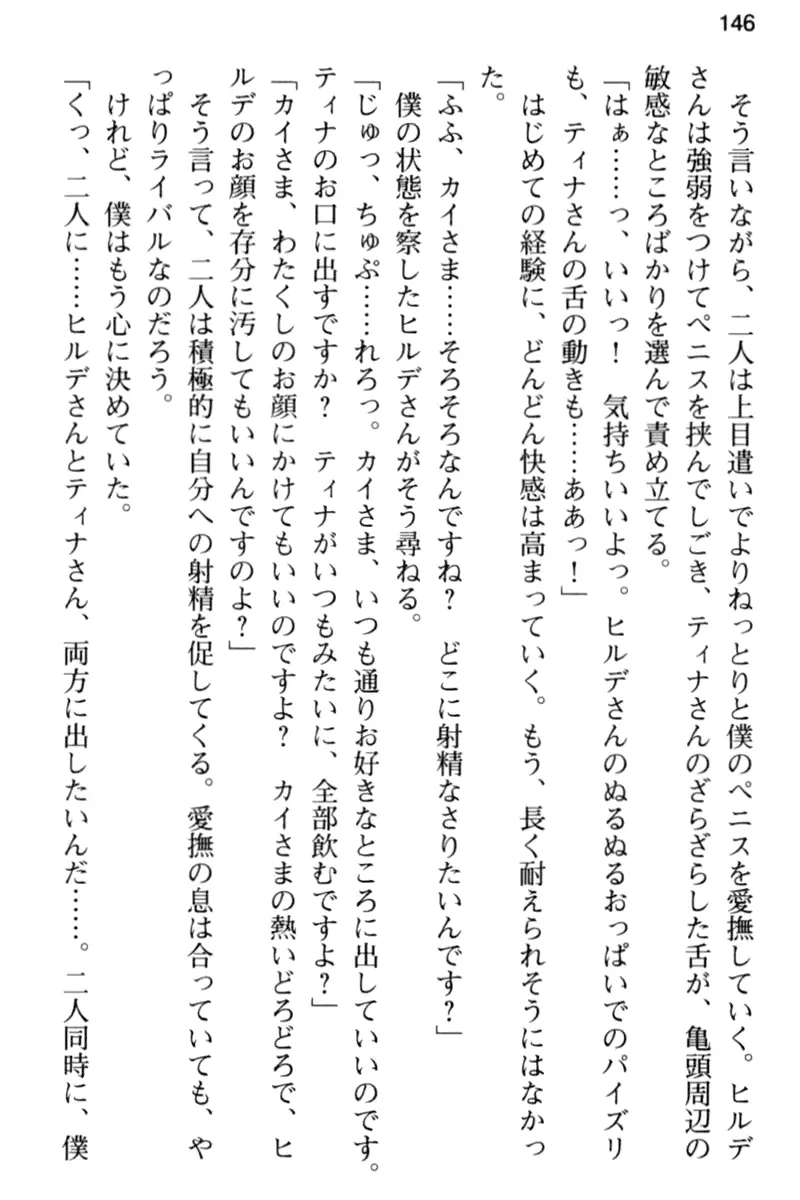 146
そう言いながら、二人は上目遣いでよりねっとりと僕のペニスを愛撫していく。ヒルデ
さんは強弱をつけてペニスを挟んでしごき、ティナさんのざらざらした舌が、亀頭周辺の
敏感なところばかりを選んで責め立てる。
「はぁ……っ、いいっ！　気持ちいいよっ。ヒルデさんのぬるぬるおっぱいでのパイズリ
も、ティナさんの舌の動きも……ああっ！」
はじめての経験に、どんどん快感は高まっていく。もう、長く耐えられそうにはなかっ
た。
「ふふ、カイさま……そろそろなんですね？　どこに射精なさりたいんです？」
僕の状態を察したヒルデさんがそう尋ねる。
「じゅっ、ちゅぷ……れろっ。カイさま、いつも通りお好きなところに出していいのです。
ティナのお口に出すですか？　ティナがいつもみたいに、全部飲むですよ？」
「カイさま、わたくしのお顔にかけてもいいのですよ？　カイさまの熱いどろどろで、ヒ
ルデのお顔を存分に汚してもいいんですのよ？」
そう言って、二人は積極的に自分への射精を促してくる。愛撫の息は合っていても、や
っぱりライバルなのだろう。
けれど、僕はもう心に決めていた。
「くっ、二人に……ヒルデさんとティナさん、両方に出したいんだ……。二人同時に、僕